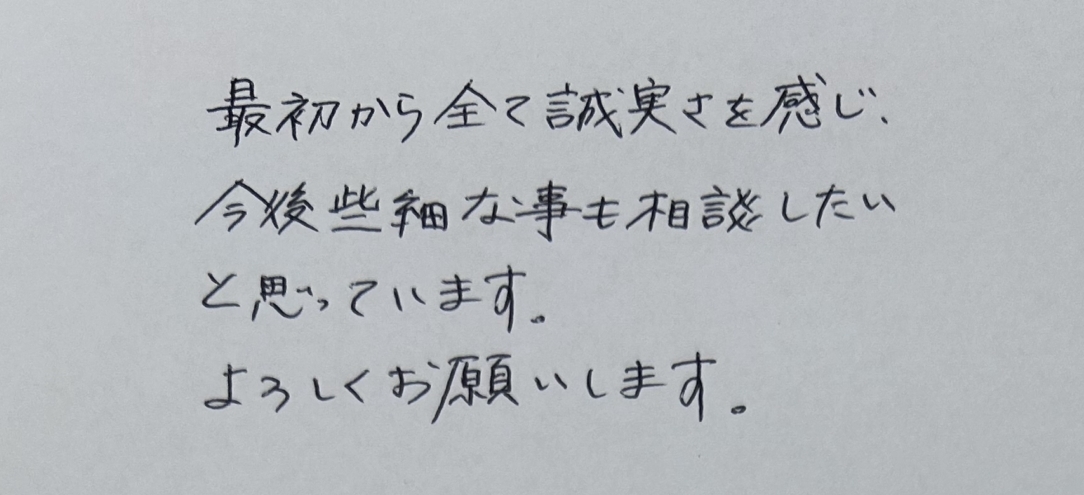 最初から全て誠実さを感じ、
今後些細な事も相談したい
と思っています。
よろしくお願いします。